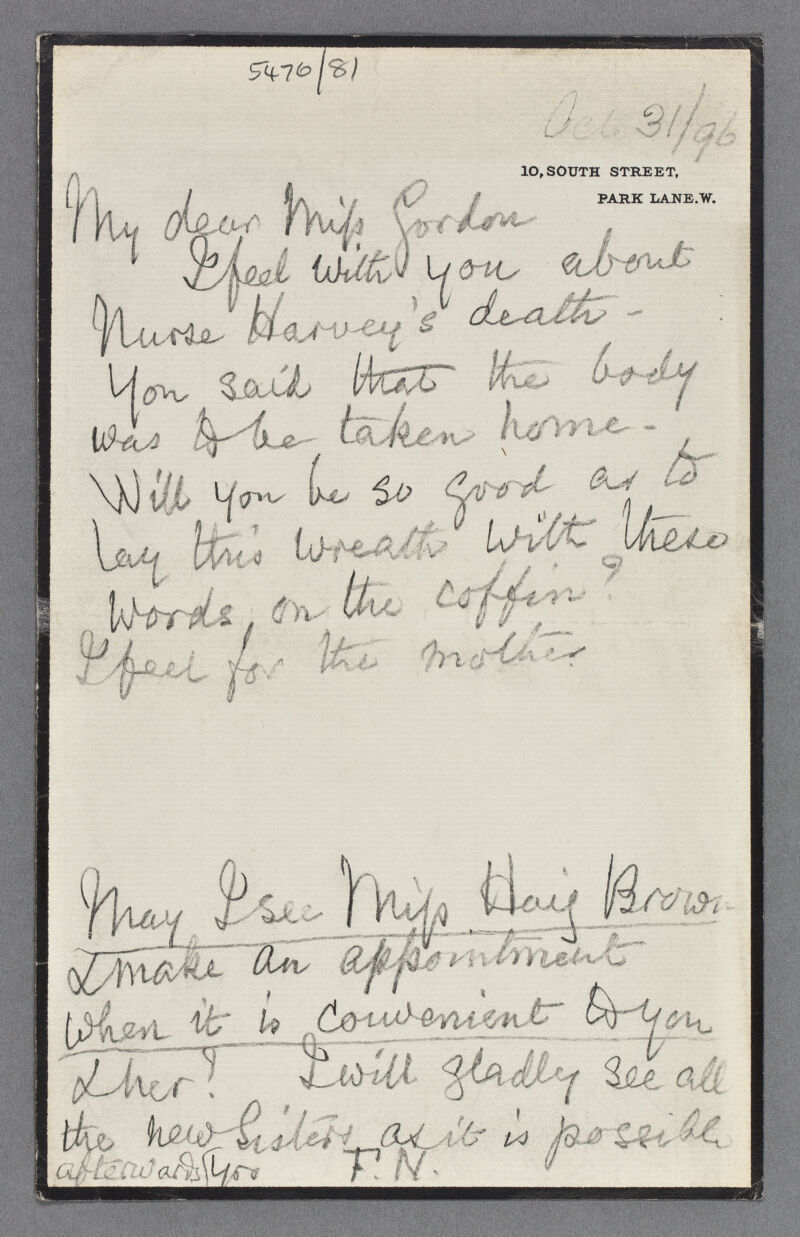 5476/81
Oct 31/96
10, SOUTH STREET,
PARK LANE. W.
My dear Miss Gordon
I feel with you about
Nurse Harvey's death -
You said that the body
was to be taken home -
Will you be so good as to
lay this wreath with these
words, on the coffin?
I feel for the mother
May I see Miss Haig Brown
& make an appointment
when it is convenient to you
& her? I will gladly see all
the new Sisters as it is possible
afterwards Yrs F. N.